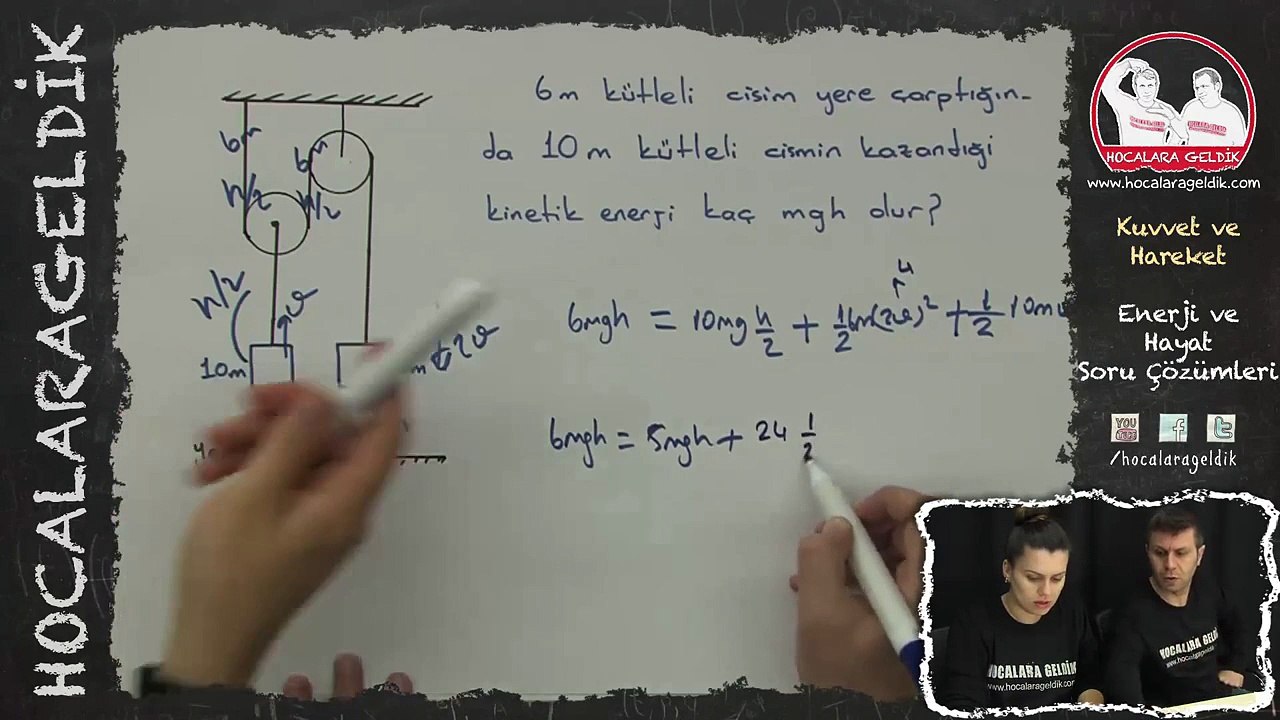 HOCALARAGELDİK
6m kütleli cisim yere çarptığın-
da 10m kütleli cismin kazandığı
kinetik enerji kaç mgh olur?
6m
6m
h/2
h/2
h/2
ϑ
10m
2ϑ
4
6mgh = 10mg h/2 + 1/2 6m(2ϑ)² + 1/2 10m
6mgh = 5mgh + 24 1/2
HOCALARA GELDİK
www.hocalarageldik.com
Kuvvet ve
Hareket
Enerji ve
Hayat
Soru Çözümleri
You
Tube
f
t
/hocalarageldik
HOCALARA GELDİK
www.hocalarageldik.com
HOCALARA GELDİK
www.hocalarageldik.com